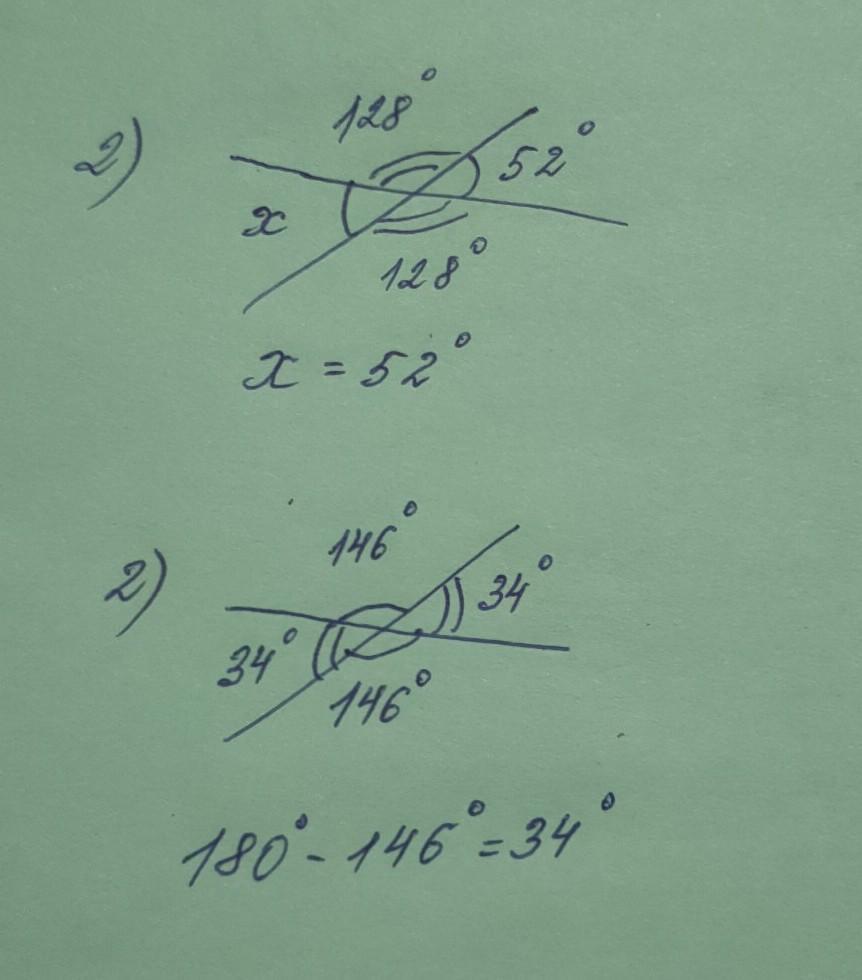 2)
128°
52°
x
128°
x = 52°
2)
146°
34°
34°
146°
180° - 146° = 34°